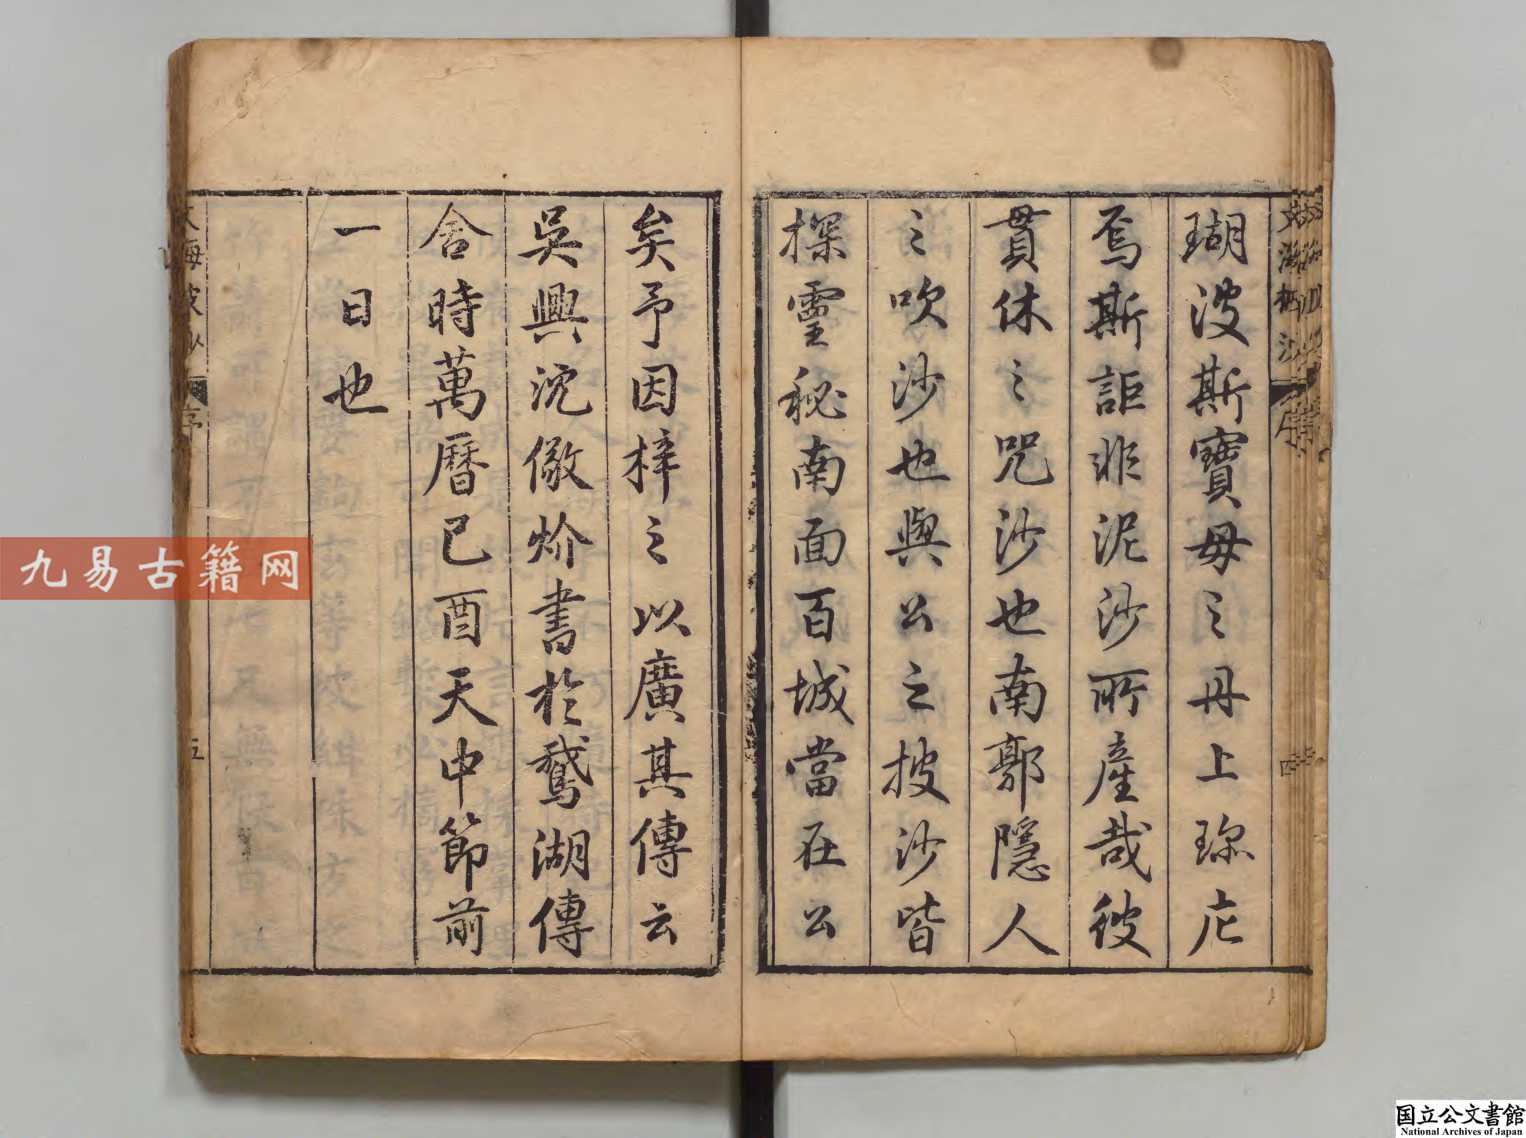 瑚波斯寶母之丹上琛庀
焉斯詎非泥沙所產哉彼
貫休之咒沙也南郭隱人
之吹沙也與公之披沙皆
探靈秘南面百城當在公
矣予因梓之以廣其傳云
吳興沈儆炌書於鵝湖傳
舍時萬曆己酉天中節前
一日也
序
五
九易古籍网
国立公文書館
National Archives of Japan